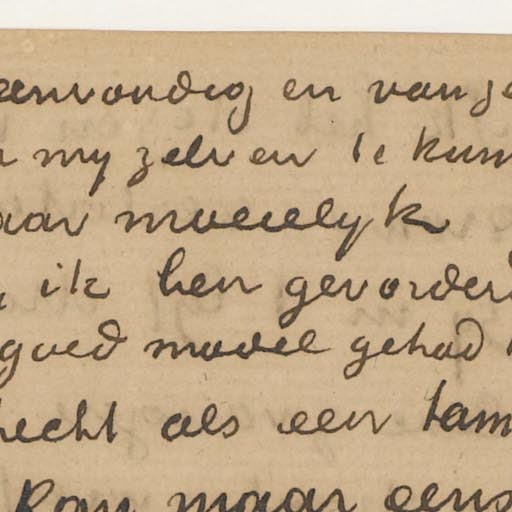 eenvoudig en van z
my zelven te kun
aar moeielyk
ik ben gevorderd
goed model gehad
echt als een lam
Kan maar eens